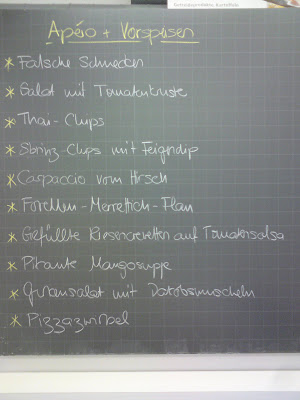 Apéro + Vorspeisen
* Falsche Schnecken
* Salat mit Tomatenkruste
* Thai-Chips
* Sbrinz-Chips mit Feigendip
* Carpaccio vom Hirsch
* Forellen-Merrettich-Flan
* Gefüllte Riesencrevetten auf Tomatensalsa
* Pikante Mangosuppe
* Gurkensalat mit Jakobsmuscheln
* Pizzazwirbel